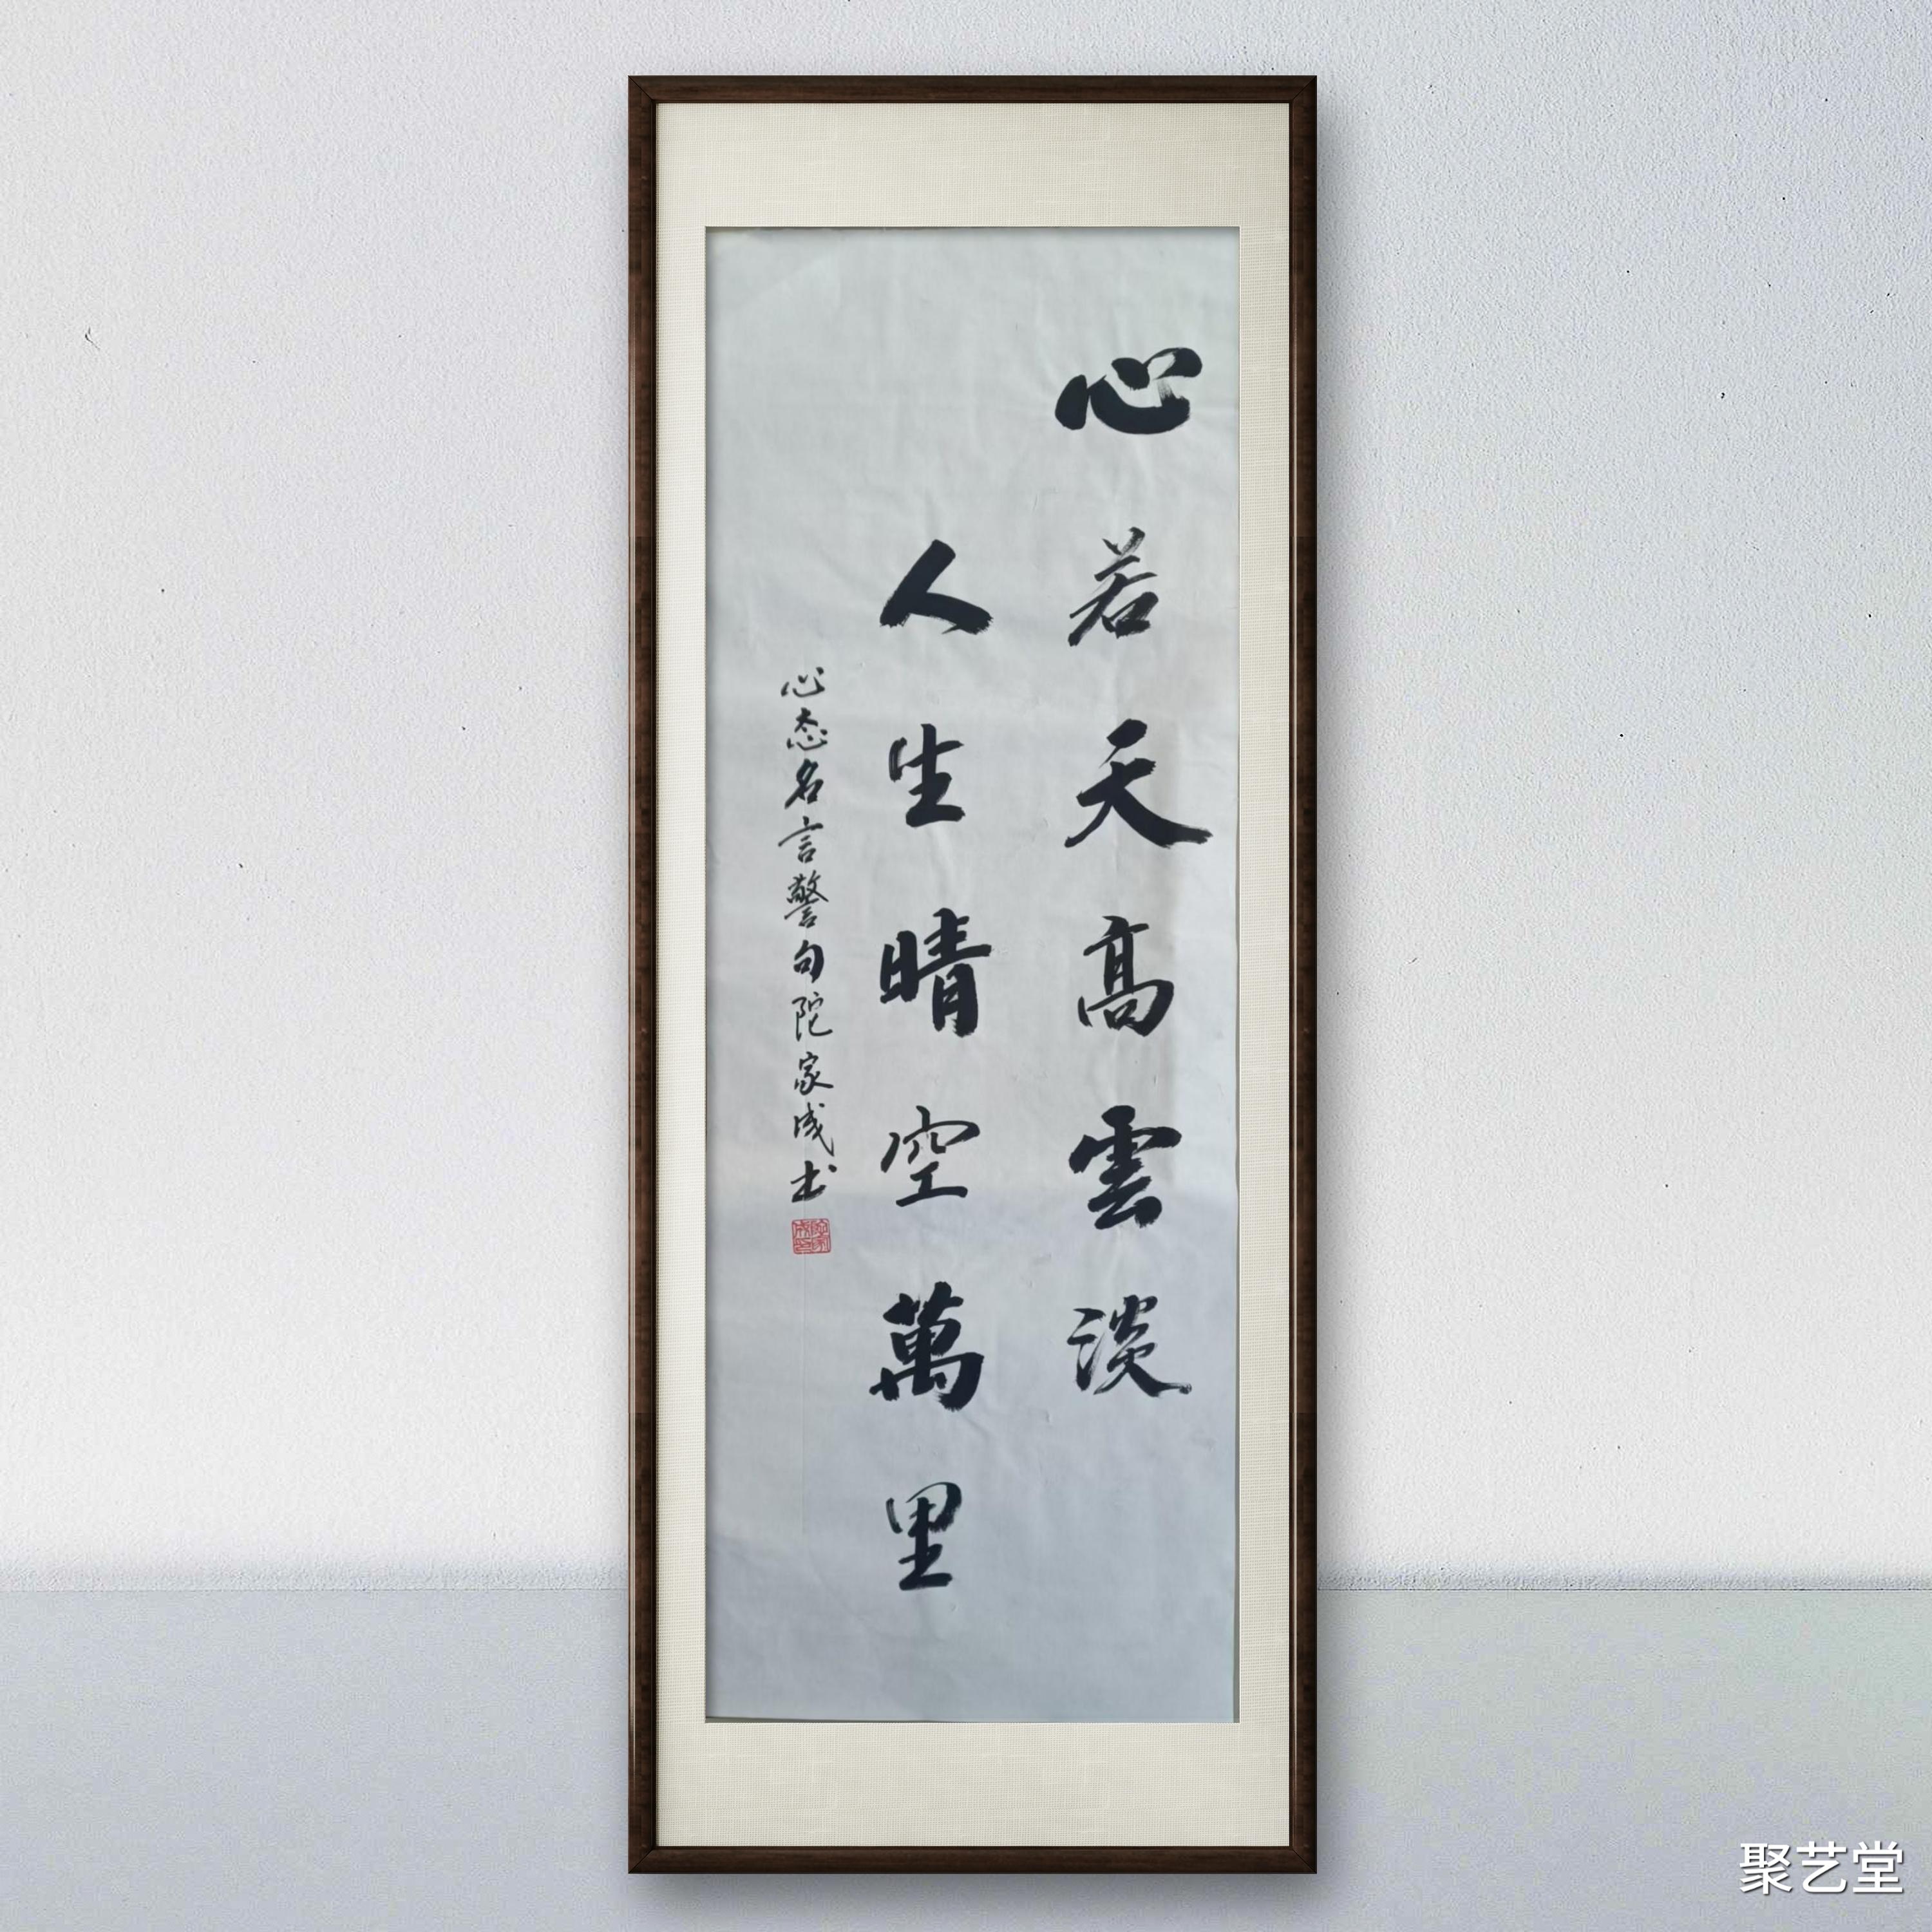 心若天高雲淡
人生晴空萬里
心态名言警句陀家成书
聚艺堂